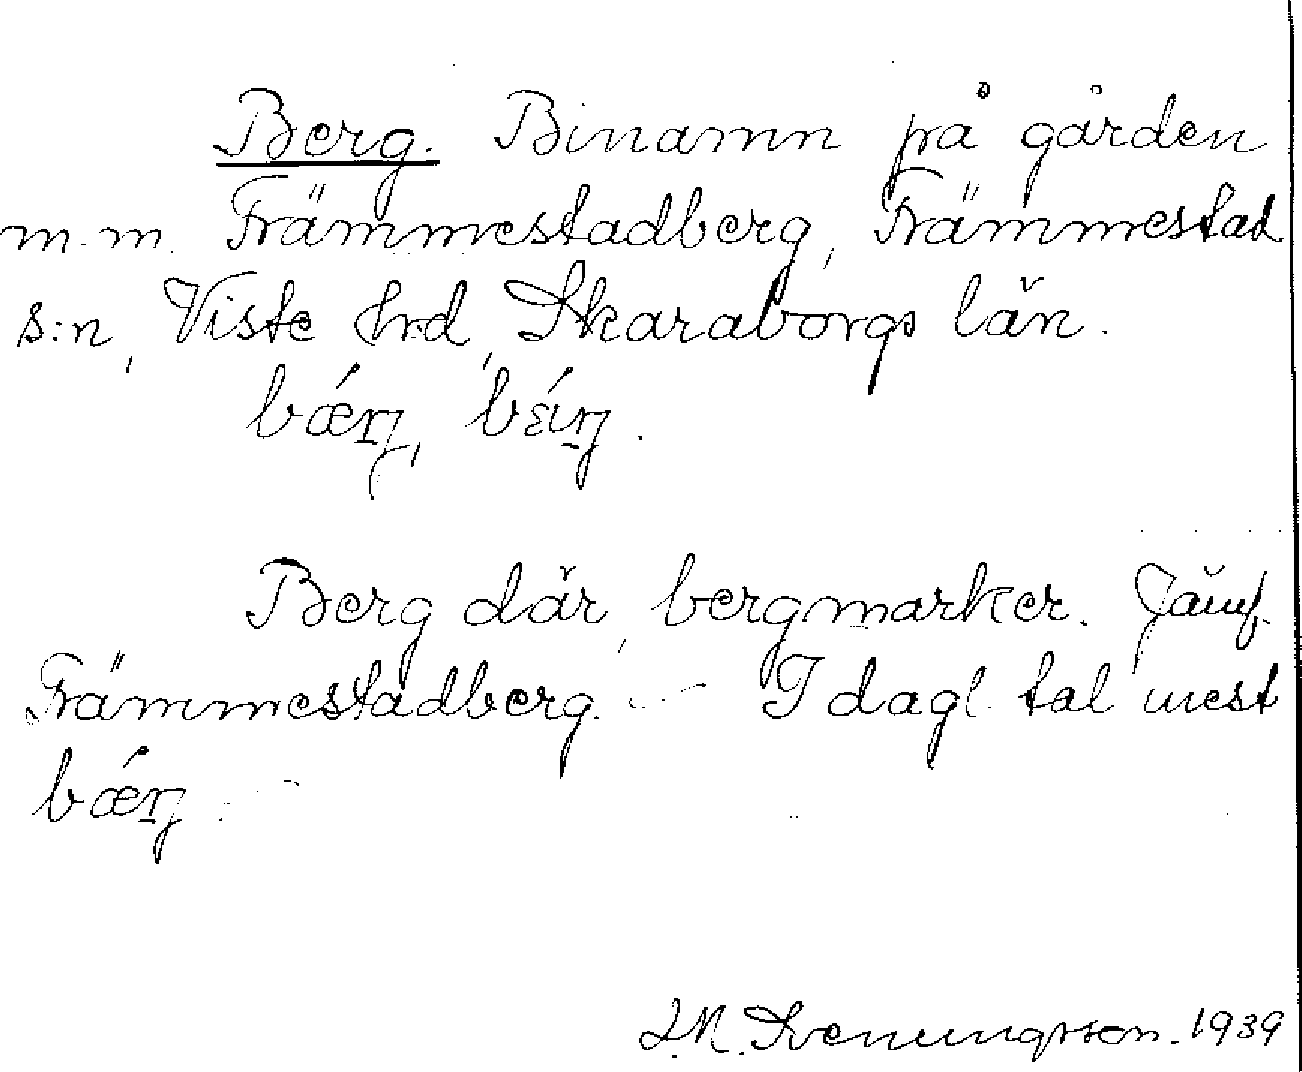 Berg. Binamn på gården
m.m. Främmestadberg, Främmestad
s:n, Viste hrd, Skaraborgs län.
Berg där, bergmarker. Jämf.
Främmestadberg. – I dagl. tal mest
Svenningsson. 1939